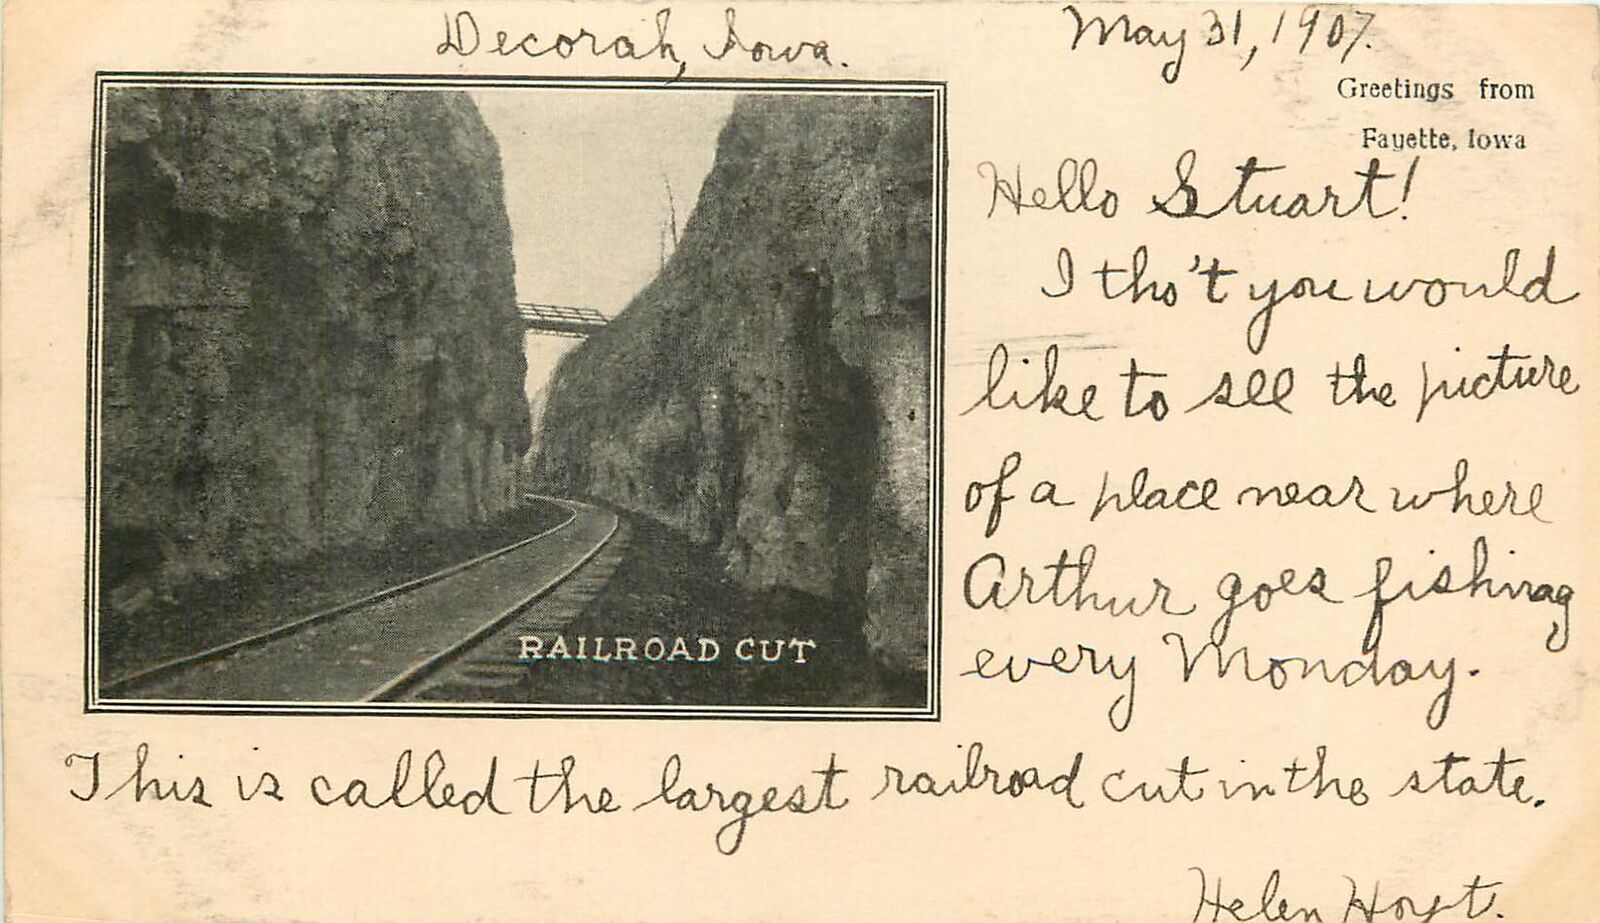 Decorah, Iowa.
May 31, 1907.
Greetings from
Fayette, Iowa
Hello Stuart!
I tho't you would
like to see the picture
of a place near where
Arthur goes fishing
every Monday.
RAILROAD CUT
This is called the largest railroad cut in the state.
Helen Hoyt.